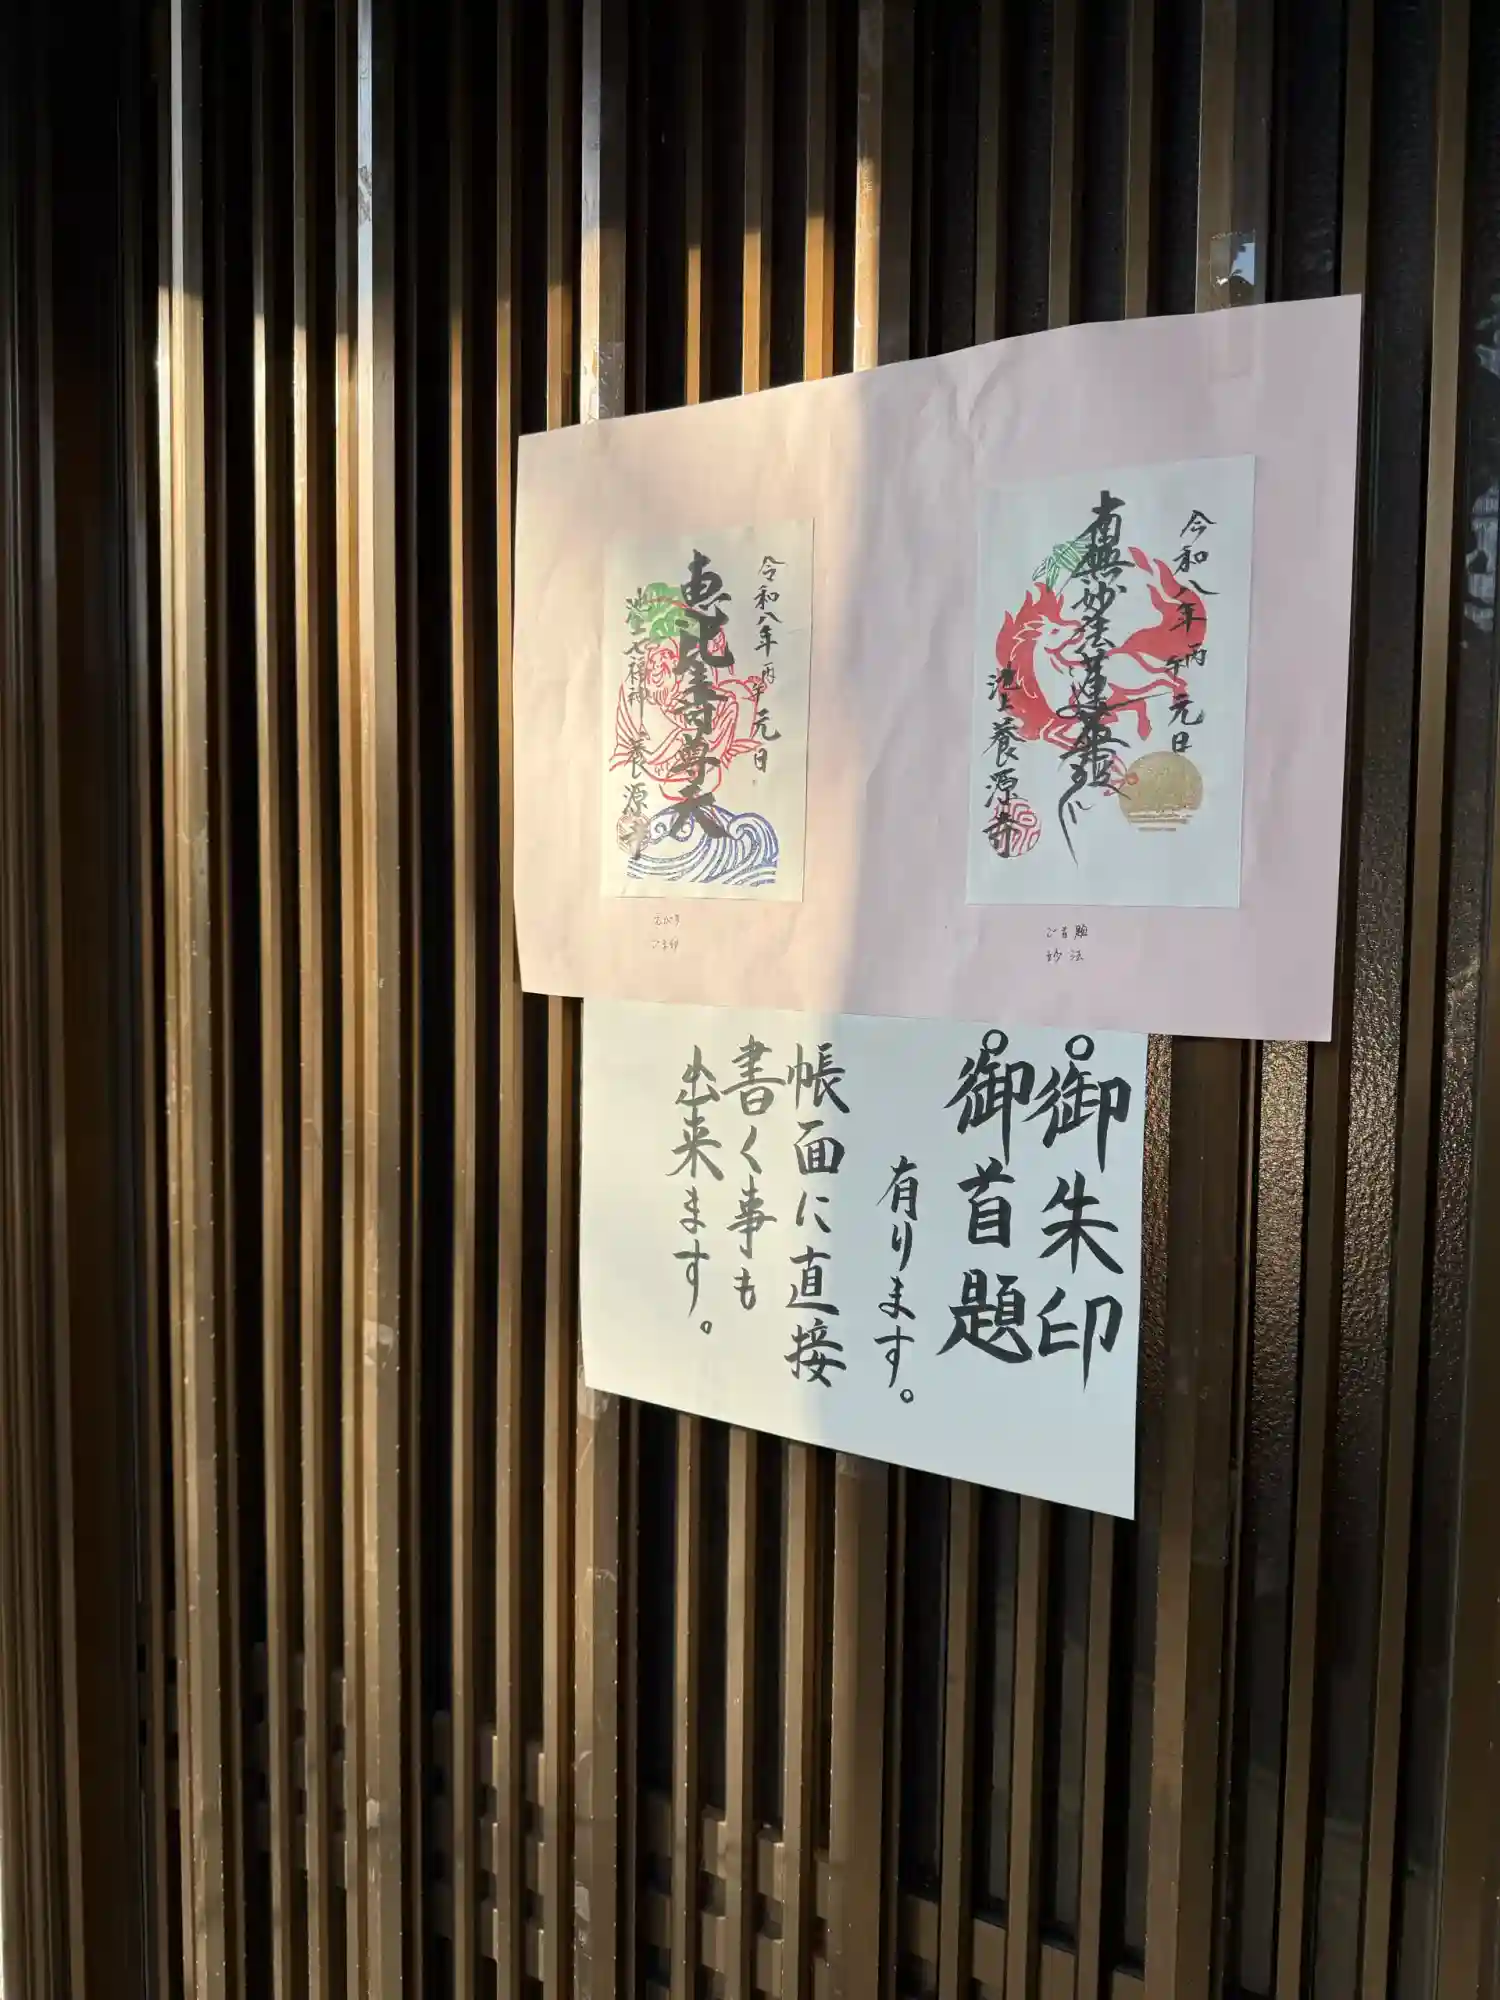 令和八年 丙午 元日
南無妙法蓮華経
池上 養源寺
ご首題
妙法
令和八年 丙午 元日
恵比寿尊天
池上七福神 養源寺
ご朱印
。御朱印
。御首題
有ります。
帳面に直接
書く事も
出来ます。